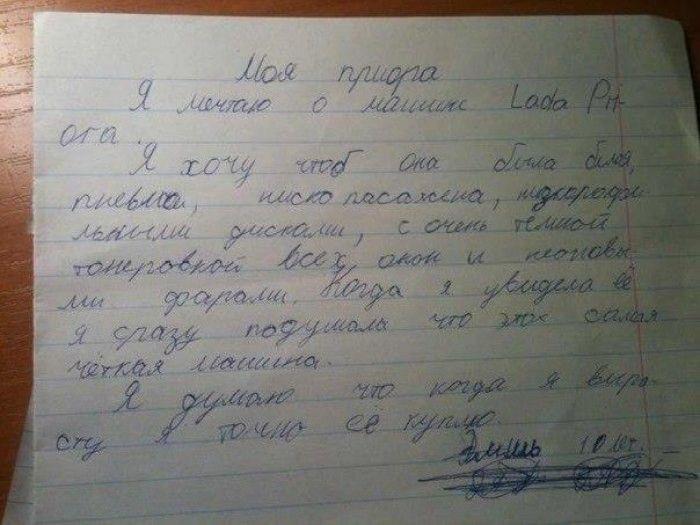 Моя приора
Я мечтаю о машине Lada Pri-
ora.
Я хочу чтоб она была белая,
пневмой, ниско пасажена, низкопрофи
льными дисками, с очень тёмной
тонеровкой всех окон и неоновы
ми фарами. Когда я увидела её
я сразу подумала что это самая
чёткая машина.
Я думаю что когда я выра-
сту я точно её куплю.
Эмиль 10 лет